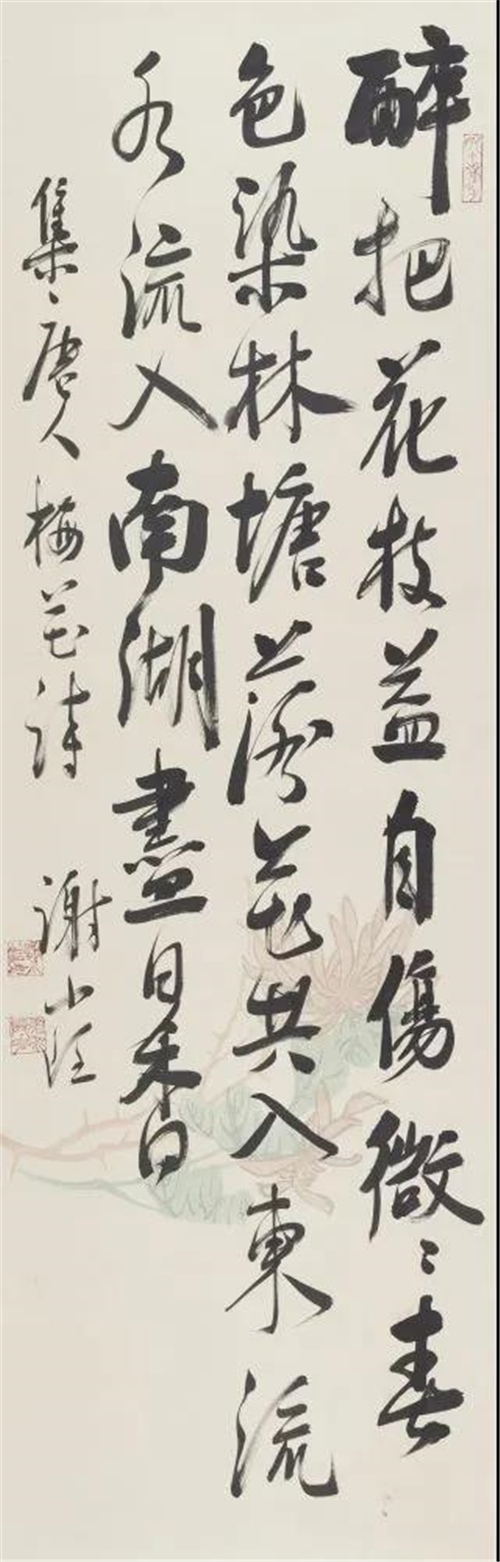 醉把花枝益自傷微〻春
色染林塘落花共入東流
水流入南湖盡日香
集唐人梅花詩 謝小